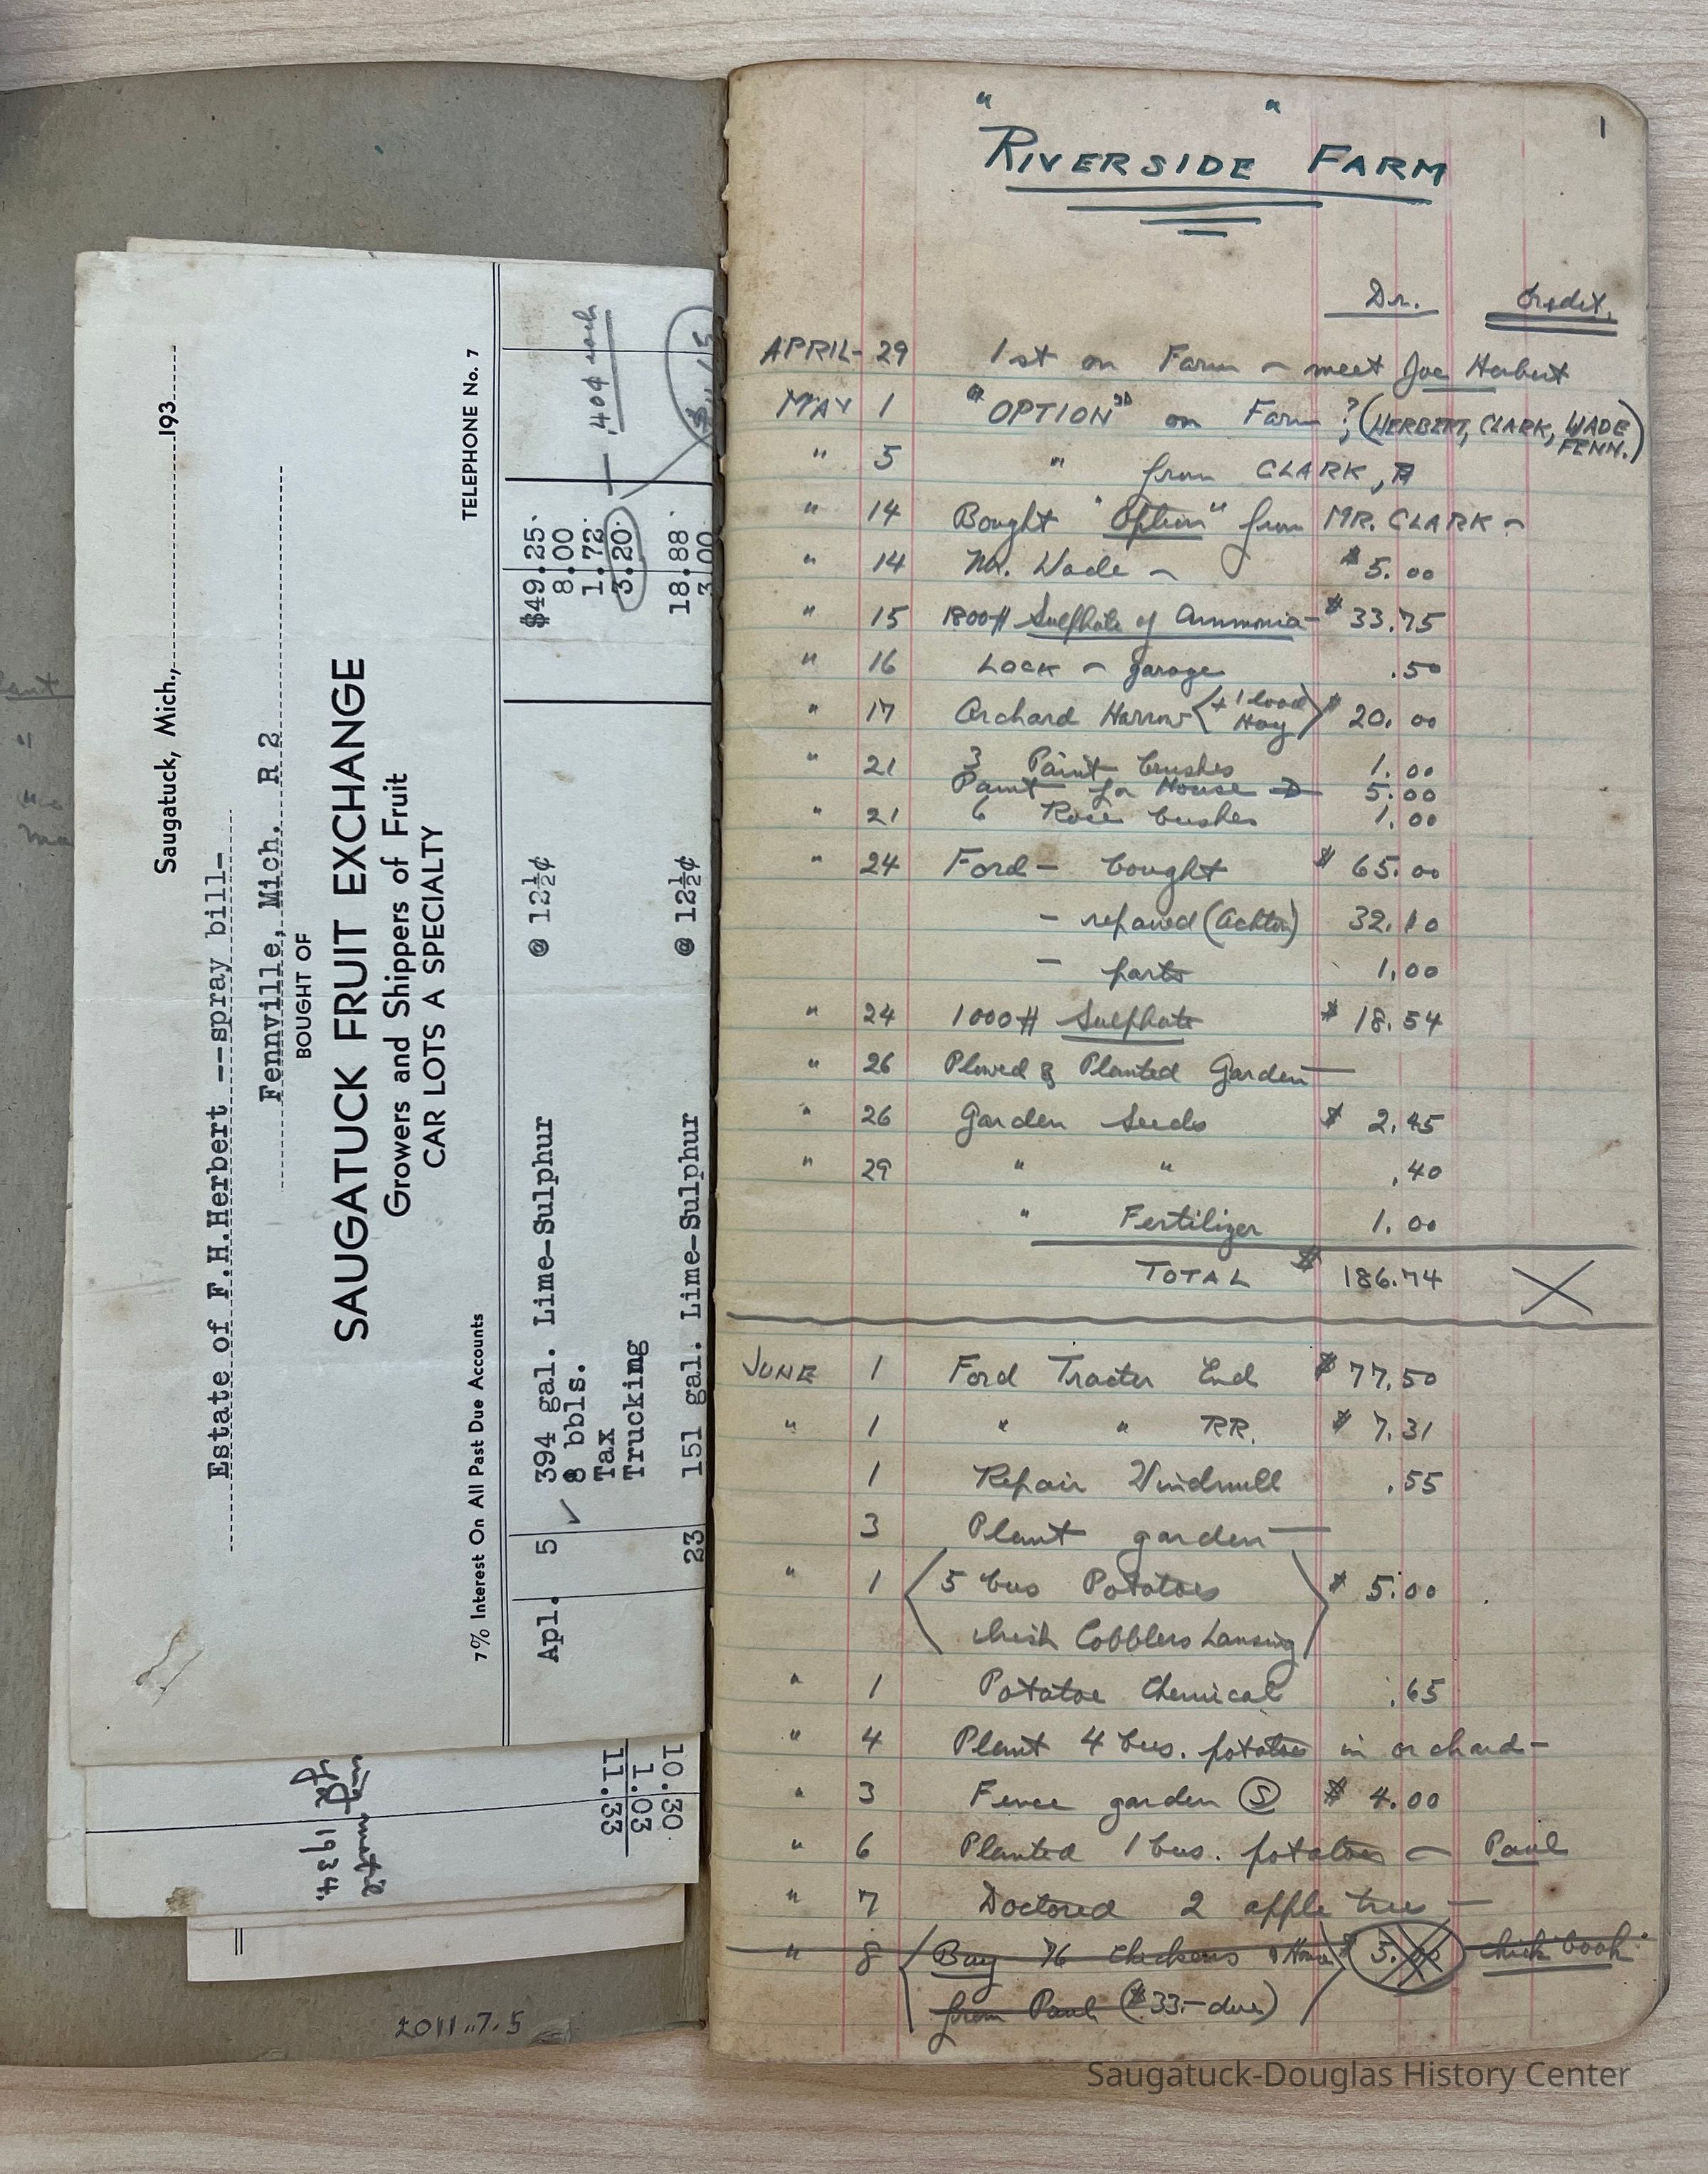 Saugatuck, Mich., 193
Estate of F.H.Herbert --spray bill-
Fennville, Mich. R 2
BOUGHT OF
SAUGATUCK FRUIT EXCHANGE
Growers and Shippers of Fruit
CAR LOTS A SPECIALTY
7% Interest On All Past Due Accounts TELEPHONE No. 7
Apl. 5 394 gal. Lime-Sulphur @ 12½¢ $49.25
8 bbls. 8.00
Tax 1.72
Trucking 3.20 — .40¢ each
23 151 gal. Lime-Sulphur @ 12½¢ 18.88
3.00
10.30
1.03
11.33
1934.
2011.7.5
1
"RIVERSIDE" FARM
Dr. Credit.
APRIL- 29 1st on Farm - meet Joe Herbert
MAY 1 "OPTION" on Farm ?; (HERBERT, CLARK, WADE
FENN.)
" 5 " from CLARK,
" 14 Bought "Option" from MR. CLARK -
" 14 Mr. Wade - $5.00
" 15 1800# Sulphate of Ammonia- $33.75
" 16 LOCK - garage .50
" 17 Orchard Harrow (+ 1 load Hay) $20.00
" 21 3 Paint brushes 1.00
Paint for House 5.00
" 21 6 Rose bushes 1.00
" 24 Ford - bought $65.00
- repaired (Achton) 32.10
- parts 1.00
" 24 1000# Sulphate $18.54
" 26 Plowed & Planted Garden—
" 26 Garden Seeds $2.45
" 29 " " .40
" Fertilizer 1.00
TOTAL $186.74 X
JUNE 1 Ford Tractor End $77.50
" 1 " " RR. $7.31
1 Repair Windmill .55
3 Plant garden—
" 1 5 bus Potatoes $5.00
Irish Cobblers Lansing
" 1 Potatoe Chemical .65
" 4 Plant 4 bus. potatoes in orchard-
" 3 Fence garden (S) $4.00
" 6 Planted 1 bus. potatoes - Paul
" 7 Doctored 2 apple trees —
" 8 Buy 76 Chickens & House $5.00 "chick book"
from Paul ($33.- due)
Saugatuck-Douglas History Center